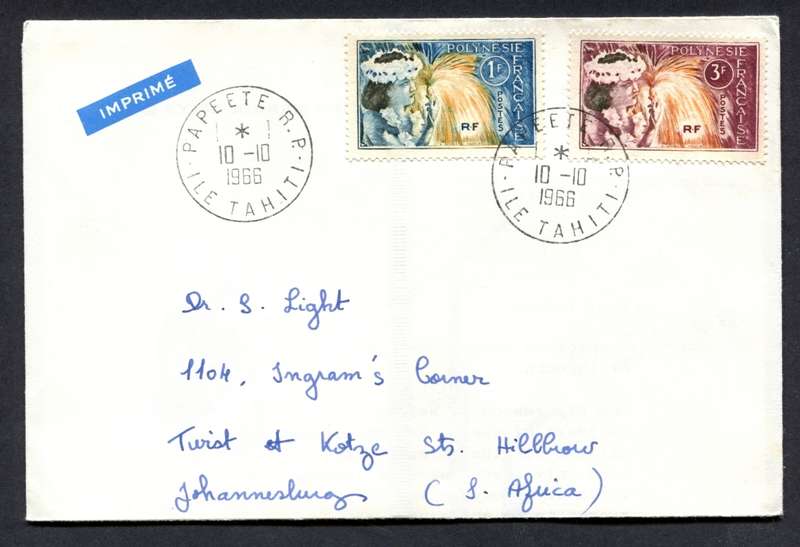 IMPRIMÉ
PAPEETE R.P.
10 -10
1966
ILE TAHITI
POLYNÉSIE
FRANÇAISE
1F
POSTES
RF
POLYNÉSIE
FRANÇAISE
3F
POSTES
RF
PAPEETE R.P.
10 -10
1966
ILE TAHITI
Dr. S. Light
1104, Ingram's Corner
Twist et Kotze Sts. Hillbrow
Johannesburg ( S. Africa )